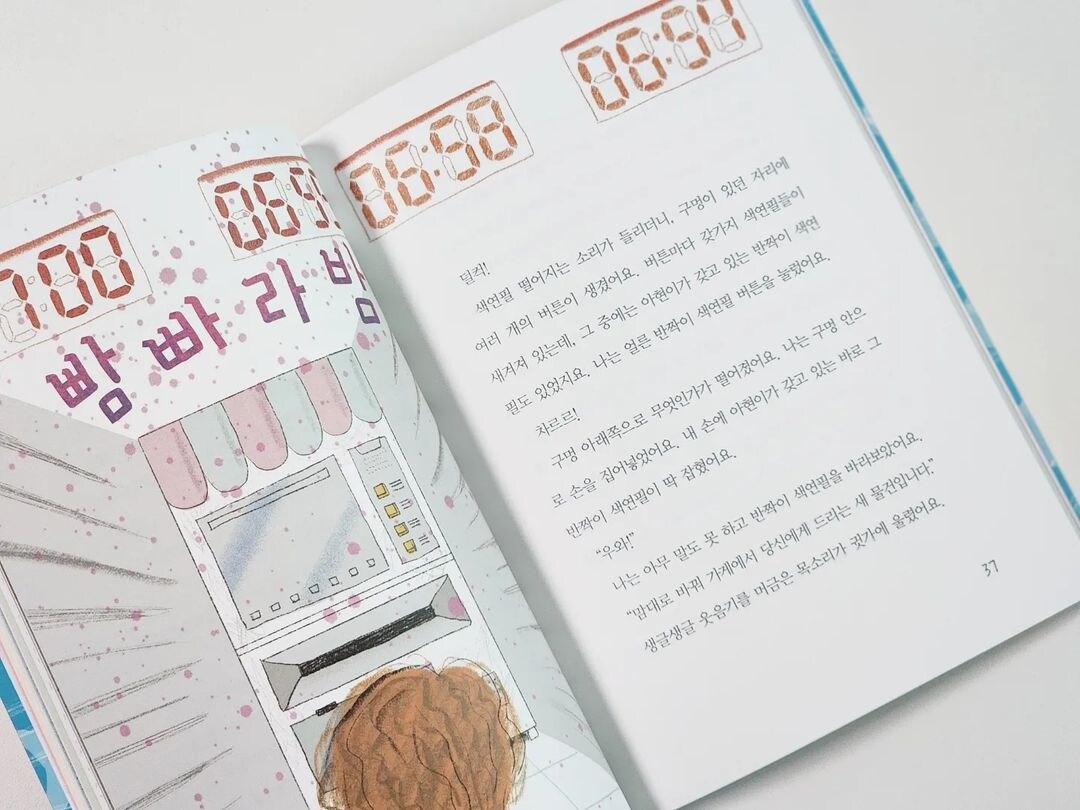 7:00
06:59
빵빠라밤
06:58
06:57
덜컥!
색연필 떨어지는 소리가 들리더니, 구멍이 있던 자리에
여러 개의 버튼이 생겼어요. 버튼마다 갖가지 색연필들이
새겨져 있는데, 그 중에는 아현이가 갖고 있는 반짝이 색연
필도 있었지요. 나는 얼른 반짝이 색연필 버튼을 눌렀어요.
차르르!
구멍 아래쪽으로 무엇인가가 떨어졌어요. 나는 구멍 안으
로 손을 집어넣었어요. 내 손에 아현이가 갖고 있는 바로 그
반짝이 색연필이 딱 잡혔어요.
“우와!”
나는 아무 말도 못 하고 반짝이 색연필을 바라보았어요.
“맘대로 바꿔 가게에서 당신에게 드리는 새 물건입니다.”
생글생글 웃음기를 머금은 목소리가 귓가에 울렸어요.
37